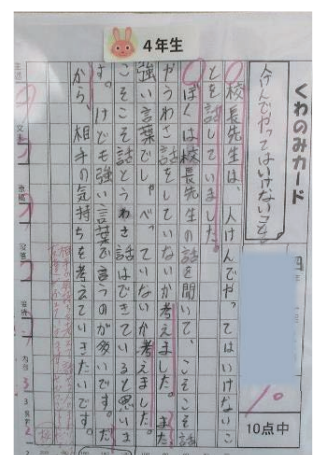 4年生
くわのみカード
人けんでやってはいけないこと
校長先生は、人けんでやってはいけないこ
とを話していました。
ぼくは校長先生の話を聞いて、こそこそ話
やうわさ話をしていないか考えました。また
強い言葉でしゃべっていないか考えました。
こそこそ話とうわさ話はできていると思いま
す。けども強い言葉で言うのが多いです。だ
から、相手の気持ちを考えていきたいです。
10
10点中